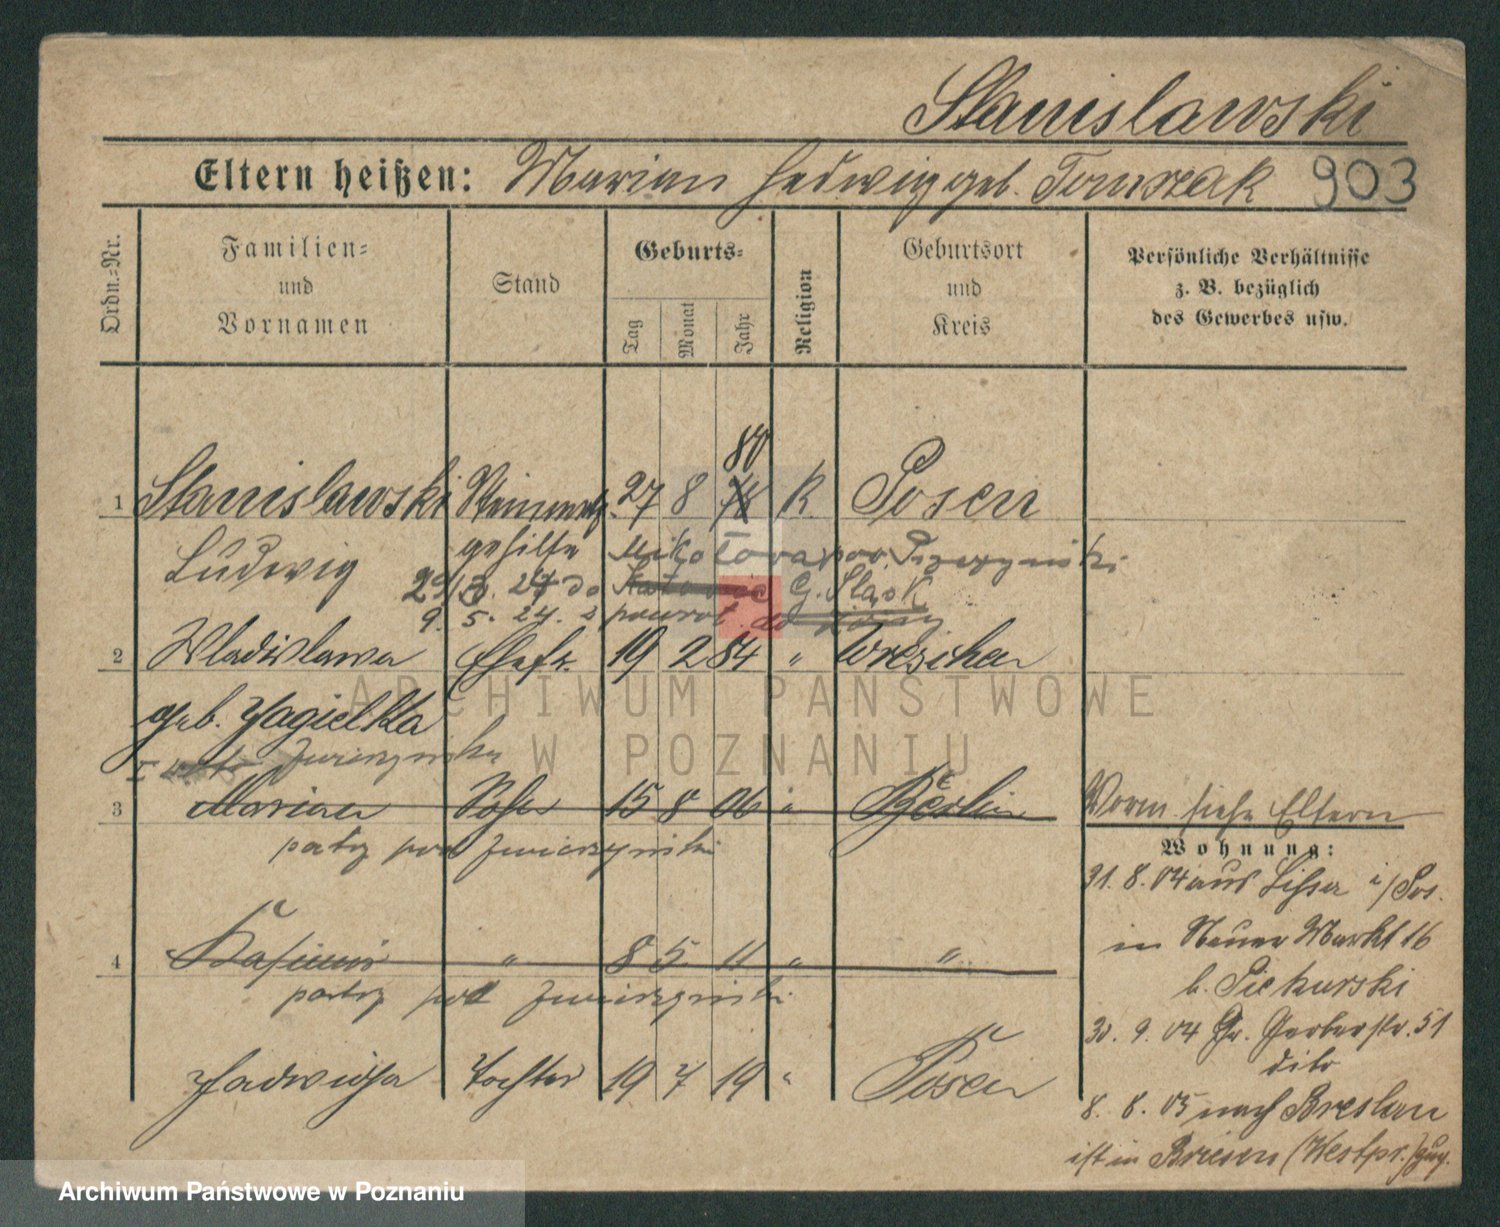 Stanislawski
Eltern heißen: Marian Hedwig geb. Tomszak 903
Ordn.=Nr.
Familien=
und
Vornamen
Stand
Geburts=
Tag
Monat
Jahr
Religion
Geburtsort
und
Kreis
Persönliche Verhältnisse
z. B. bezüglich
des Gewerbes usw.
80
1 Stanislawski Steinmetz 27 8 78 K. Posen
Ludwig gehilfe
29/3. 24 do Katowic G. Sląsk
9. 5. 24. z powrot. do
2 Wladislawa Ehefr. 19 2 84 " Wreschen
geb. Jagielka
3 Marian Sohn 15 8 06 " Berlin
patrz pod Zwierzyński
4 Kasimir " 8 5 11 " "
patrz pod Zwierzyński
Jadwiga Tochter 19 7 19 " Posen
Vorm. siehe Eltern
Wohnung:
31. 8. 04 aus Lissa i/Pos.
in Neuer Markt 16
b. Piekurski
30. 9. 04 Gr. Gerberstr. 51
dito
8. 8. 05 nach Breslau
ist in Briesen (Westpr.) zug.
ARCHIWUM PAŃSTWOWE
W POZNANIU
Archiwum Państwowe w Poznaniu